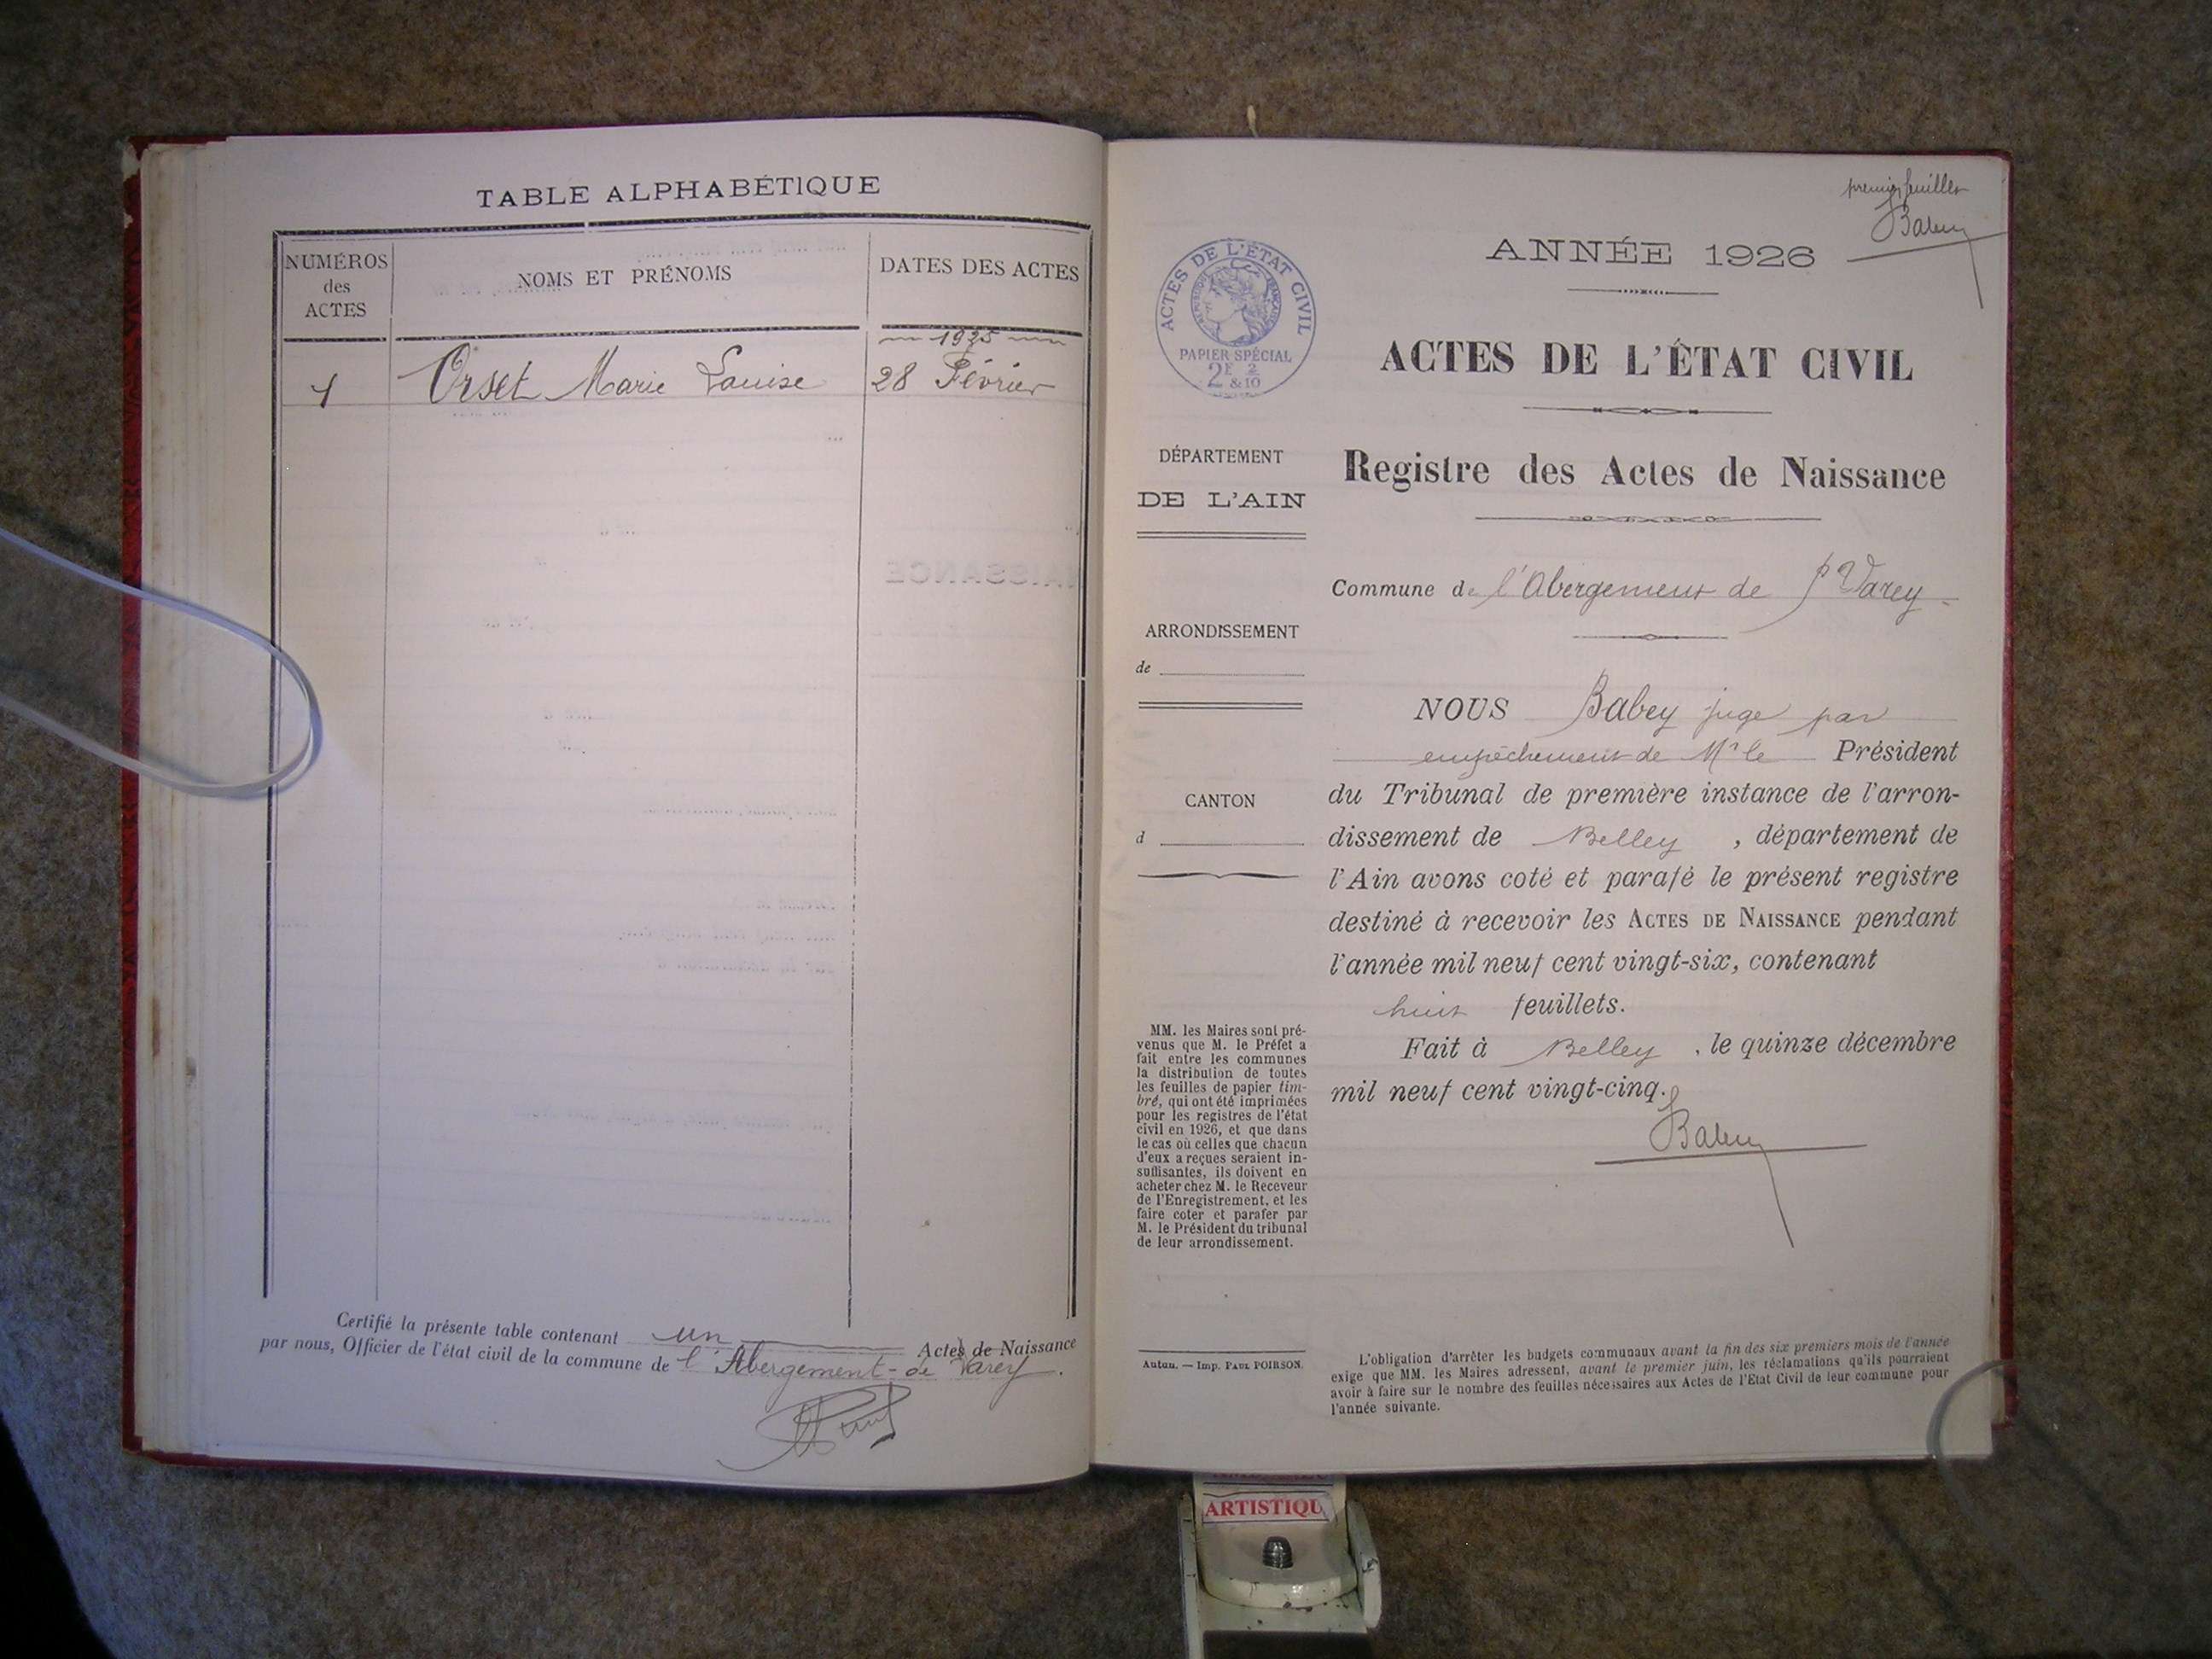 TABLE ALPHABÉTIQUE
NUMÉROS
des
ACTES
NOMS ET PRÉNOMS
DATES DES ACTES
1925
1 Orset Marie Louise 28 Février
Certifié la présente table contenant un Actes de Naissance
par nous, Officier de l'état civil de la commune de l'Abergement-de Varey.
premier feuillet
Babey
ANNÉE 1926
ACTES DE L'ÉTAT CIVIL
RÉPUBLIQUE FRANÇAISE
PAPIER SPÉCIAL
2F 2
& 10
ACTES DE L'ÉTAT CIVIL
Registre des Actes de Naissance
DÉPARTEMENT
DE L'AIN
Commune de l'Abergement de Varey
ARRONDISSEMENT
de
CANTON
d
NOUS Babey juge par
empêchement de Mr le Président
du Tribunal de première instance de l'arron-
dissement de Belley, département de
l'Ain avons coté et parafé le présent registre
destiné à recevoir les ACTES DE NAISSANCE pendant
l'année mil neuf cent vingt-six, contenant
huit feuillets.
Fait à Belley, le quinze décembre
mil neuf cent vingt-cinq.
Babey
MM. les Maires sont pré-
venus que M. le Préfet a
fait entre les communes
la distribution de toutes
les feuilles de papier tim-
bré, qui ont été imprimées
pour les registres de l'état
civil en 1926, et que dans
le cas où celles que chacun
d'eux a reçues seraient in-
suffisantes, ils doivent en
acheter chez M. le Receveur
de l'Enregistrement, et les
faire coter et parafer par
M. le Président du tribunal
de leur arrondissement.
Autun. — Imp. PAUL POIRSON.
L'obligation d'arrêter les budgets communaux avant la fin des six premiers mois de l'année
exige que MM. les Maires adressent, avant le premier juin, les réclamations qu'ils pourraient
avoir à faire sur le nombre des feuilles nécessaires aux Actes de l'Etat Civil de leur commune pour
l'année suivante.
ARTISTIQU